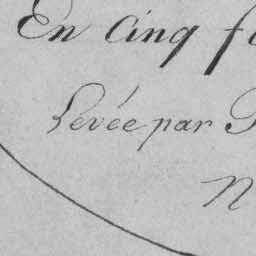 En Cinq f
Levée par
N